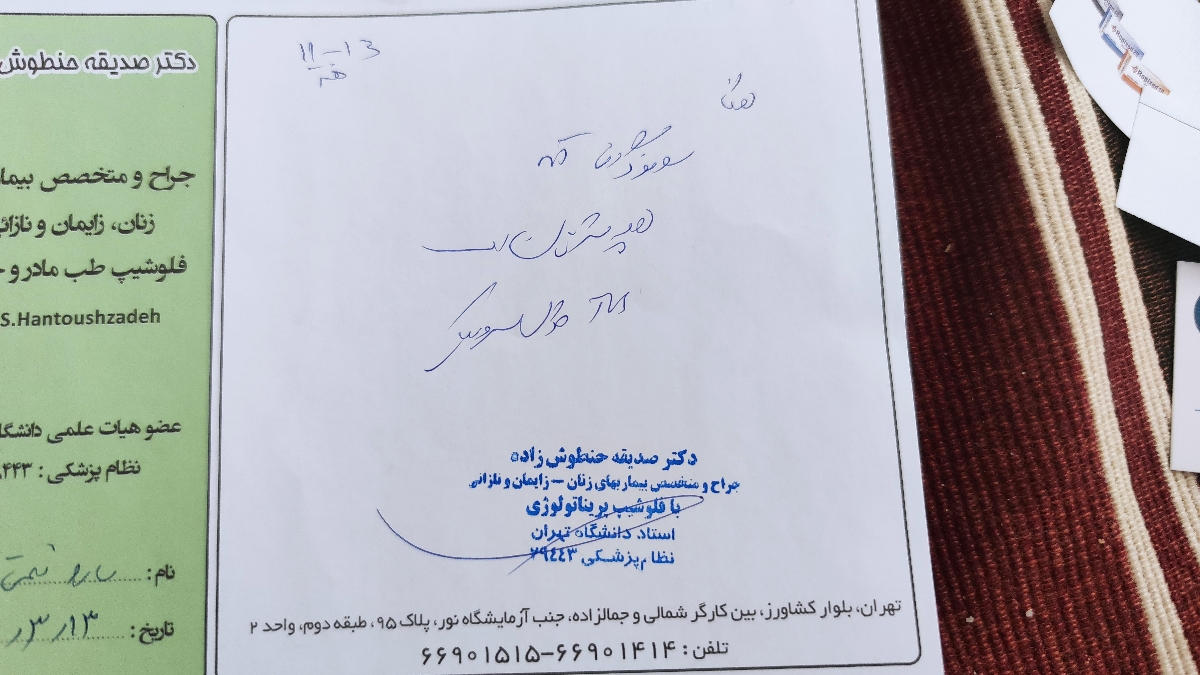 دکتر صدیقه حنطوش
جراح و متخصص بیما
زنان، زایمان و نازائی
فلوشیپ طب مادر و
S.Hantoushzadeh
عضو هیات علمی دانشگا
نظام پزشکی : ۹۴۴۳
نام :
تاریخ : ۱۳ ر ۳ ر
۱۱-۱۳
هفته
لطفا
سونوگرافی
NT
طول سرویکس
دکتر صدیقه حنطوش زاده
جراح و متخصص بیماریهای زنان – زایمان و نازائی
با فلوشیپ پریناتولوژی
استاد دانشگاه تهران
نظام پزشکی ۲۹۴۴۳
تهران، بلوار کشاورز، بین کارگر شمالی و جمالزاده، جنب آزمایشگاه نور، پلاک ۹۵، طبقه دوم، واحد ۲
تلفن : ۶۶۹۰۱۴۱۴-۶۶۹۰۱۵۱۵
Registrar.ir